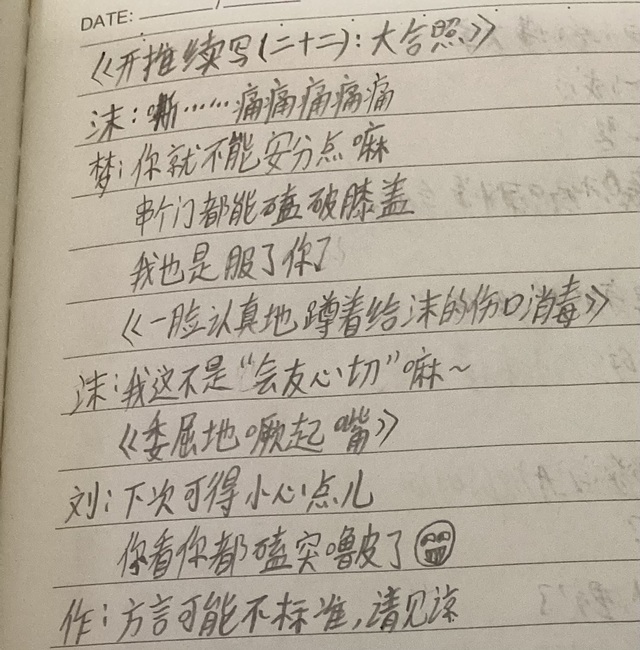 DATE: ______/______
《开推续写(二十二):大合照》
沫:嘶……痛痛痛痛痛
梦:你就不能安分点嘛
串个门都能磕破膝盖
我也是服了你了
《一脸认真地蹲着给沫的伤口消毒》
沫:我这不是“会友心切”嘛~
《委屈地噘起嘴》
刘:下次可得小心点儿
你看你都磕突噜皮了
作:方言可能不标准,请见谅